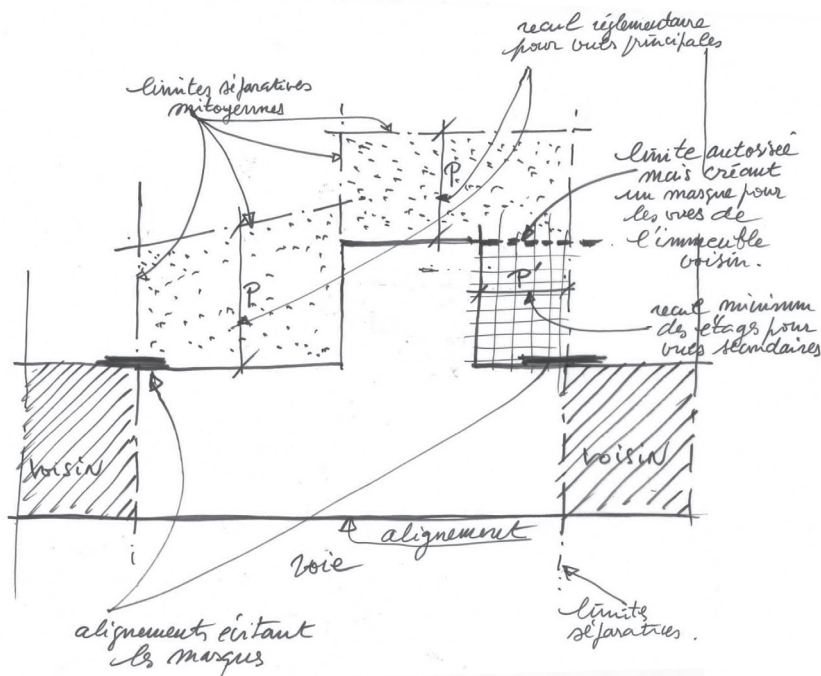 recul réglementaire
pour vues principales
limites séparatives
mitoyennes
limite autorisée
mais créant
un masque pour
les vues de
l'immeuble
voisin.
P
P
P'
recul minimum
des étages pour
vues secondaires
voisin
voisin
alignement
voie
alignements évitant
les masques
limites
séparatives.